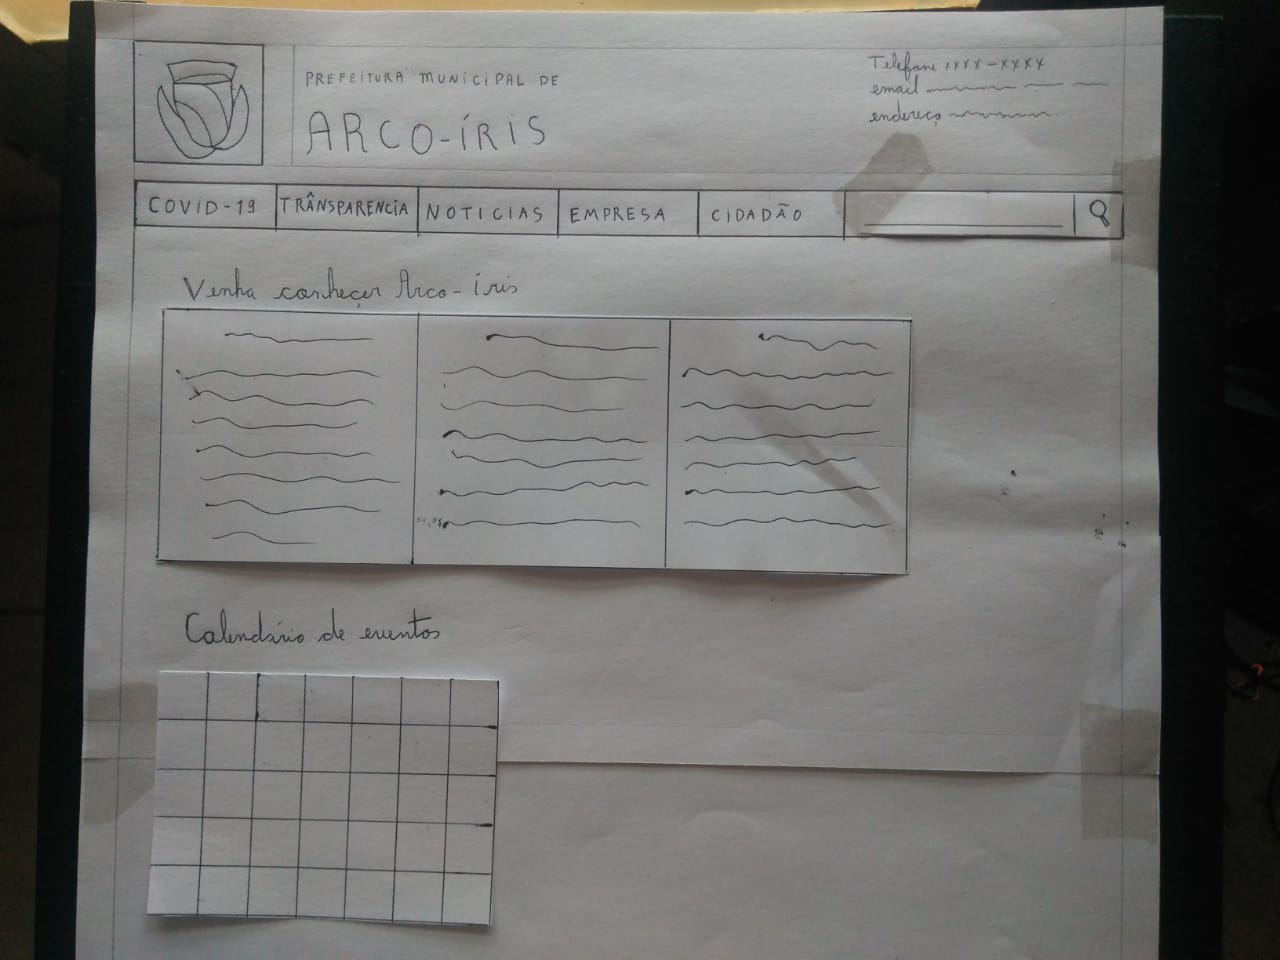 PREFEITURA MUNICIPAL DE
ARCO-ÍRIS
Telefone xxxx-xxxx
email
endereço
COVID-19
TRÂNSPARENCIA
NOTICIAS
EMPRESA
CIDADÃO
Venha conheçer Arco-Íris
Calendário de eventos